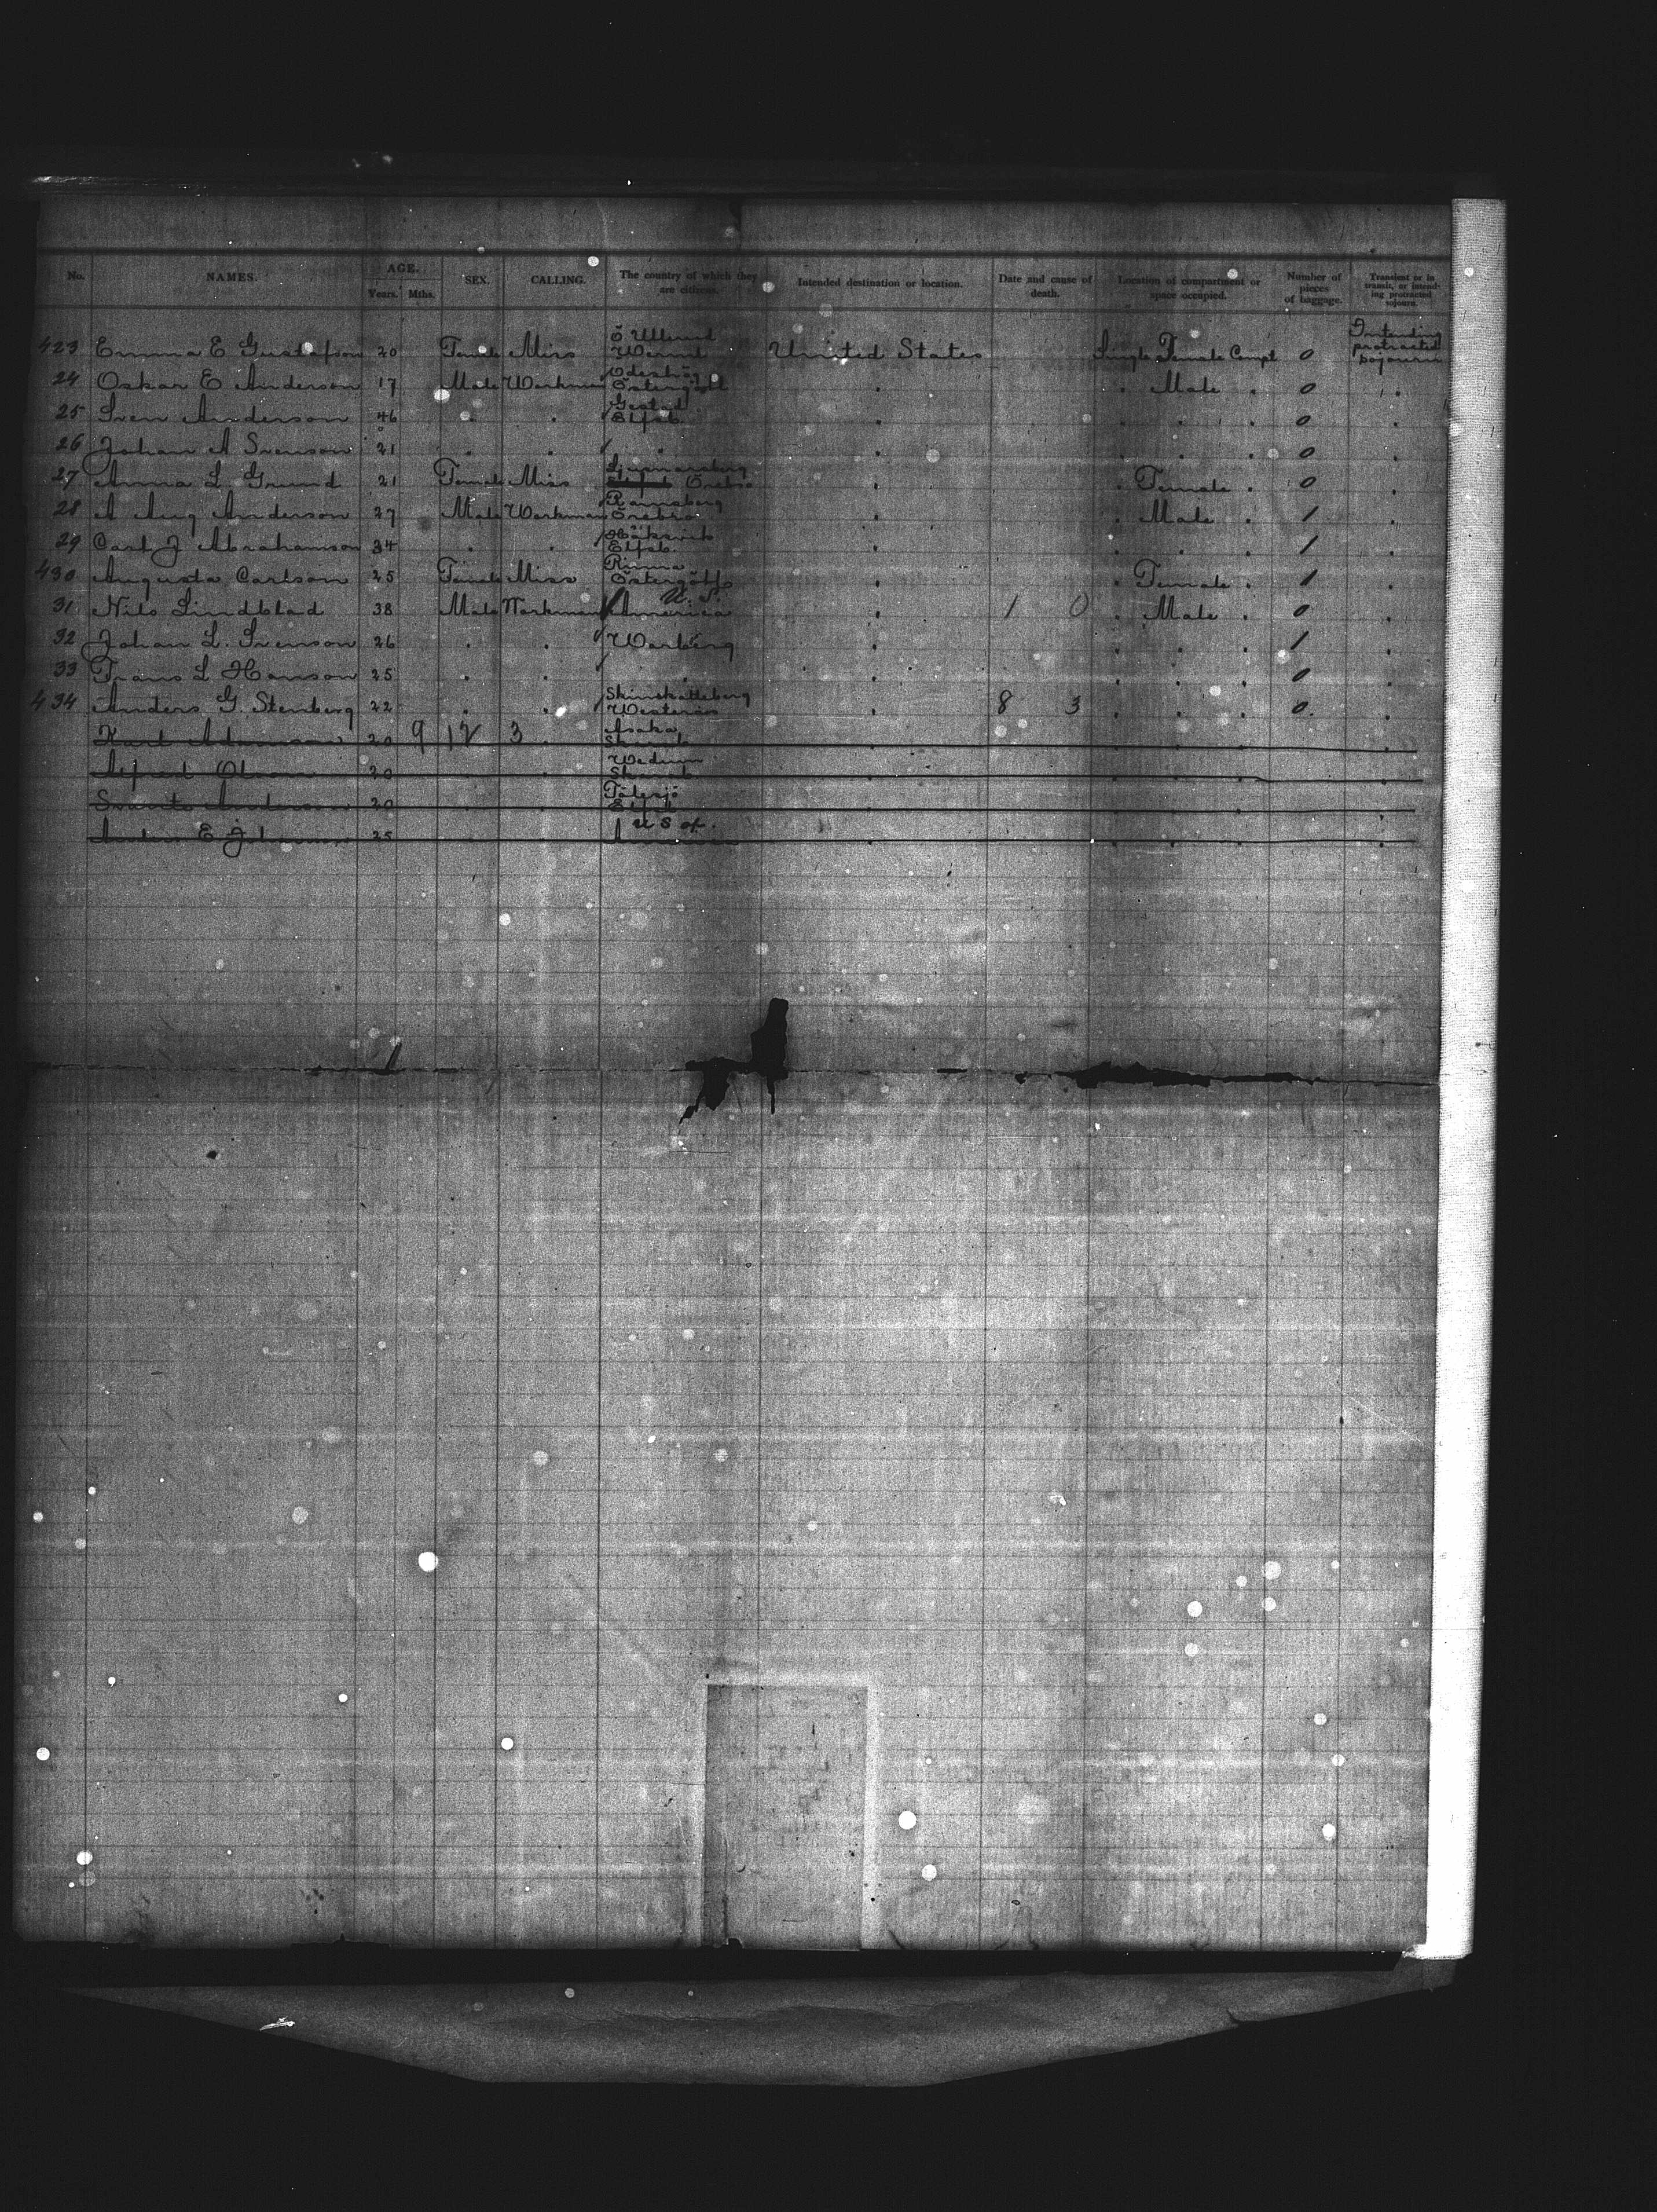 No. NAMES. AGE. Years. Mths. SEX. CALLING. The country of which they are citizens. Intended destination or location. Date and cause of death. Location of compartment or space occupied. Number of pieces of baggage. Transient or in transit, or intending protracted sojourn.
423 Emma E Gustafson 20 Female Miss Ö Ullerud Werml United States Single Female Compt 0 Intending protracted sojourn
24 Oskar E Anderson 17 Male Workman Ödeshög Östergötl " " Male " 0 "
25 Sven Anderson 46 " " Gestad Elfsb. " " " " 0 "
26 Johan A Svenson 21 " " " " " " 0 "
27 Anna L Grund 21 Female Miss Ljusnarsberg Örebro " " Female " 0 "
28 A Aug Anderson 27 Male Workman Ramsberg Örebro " " Male " 1 "
29 Carl J Abrahamson 34 " " Elfsb. " " " " 1 "
430 Augusta Carlson 25 Female Miss Rinna Östergötl " " Female " 1 "
31 Nils Lindblad 38 Male Workman U.S. America " 1 0 " Male " 0 "
32 Johan L. Svenson 26 " " Warberg " " " " 1 "
33 Frans L Hanson 25 " " " " " " " 0 "
434 Anders G. Stenberg 22 " " Skinskatteberg Westerås " 8 3 " " " 0 "
Karl Adamson 20 9 12 3 Asaka Skarab
Alfred Olson 20 " " Wedum Skarab
Svante Anderson 20 " "
E 25 " " U S of